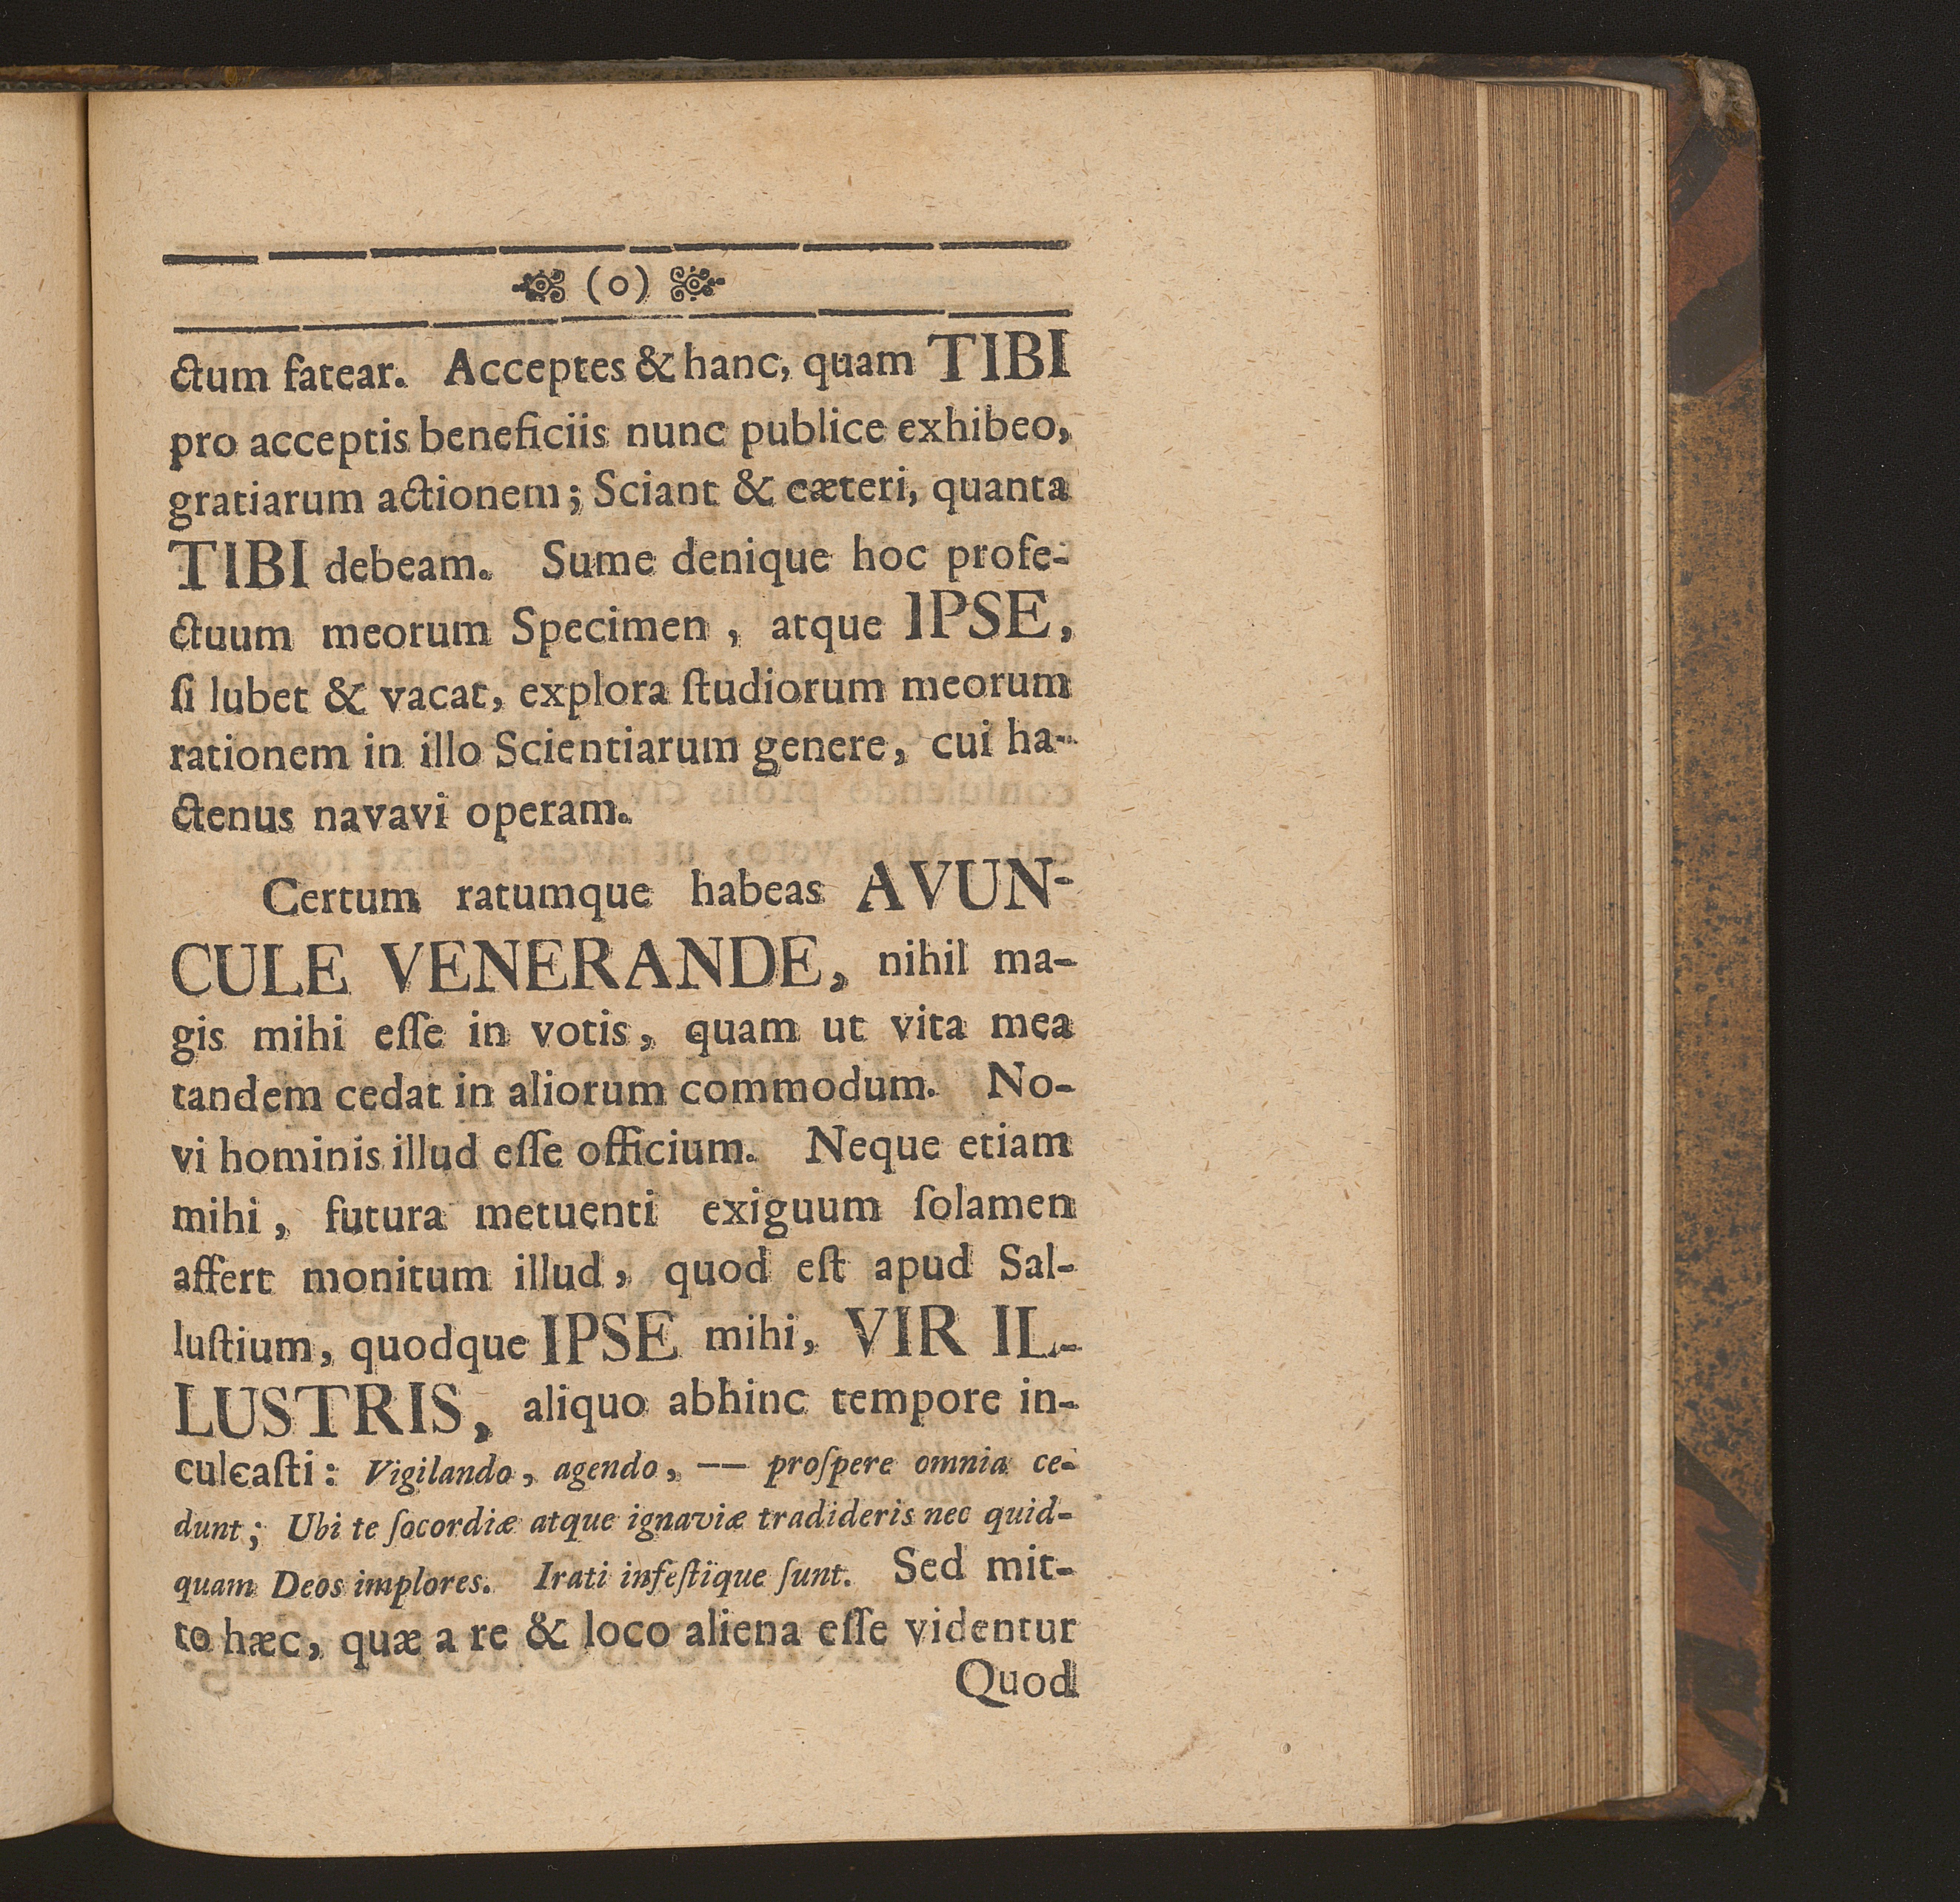 (o)
ctum fatear. Acceptes & hanc, quam TIBI
pro acceptis beneficiis nunc publice exhibeo,
gratiarum actionem; Sciant & cæteri, quanta
TIBI debeam. Sume denique hoc profe-
ctuum meorum Specimen, atque IPSE,
ſi lubet & vacat, explora ſtudiorum meorum
rationem in illo Scientiarum genere, cui ha-
ctenus navavi operam.
Certum ratumque habeas AVUN-
CULE VENERANDE, nihil ma-
gis mihi eſſe in votis, quam ut vita mea
tandem cedat in aliorum commodum. No-
vi hominis illud eſſe officium. Neque etiam
mihi, futura metuenti exiguum ſolamen
affert monitum illud, quod eſt apud Sal-
luſtium, quodque IPSE mihi, VIR IL-
LUSTRIS, aliquo abhinc tempore in-
culcaſti: Vigilando, agendo, — proſpere omnia ce-
dunt; Ubi te ſocordiæ atque ignaviæ tradideris nec quid-
quam Deos implores. Irati infeſtïque ſunt. Sed mit-
to hæc, quæ a re & loco aliena eſſe videntur
Quod